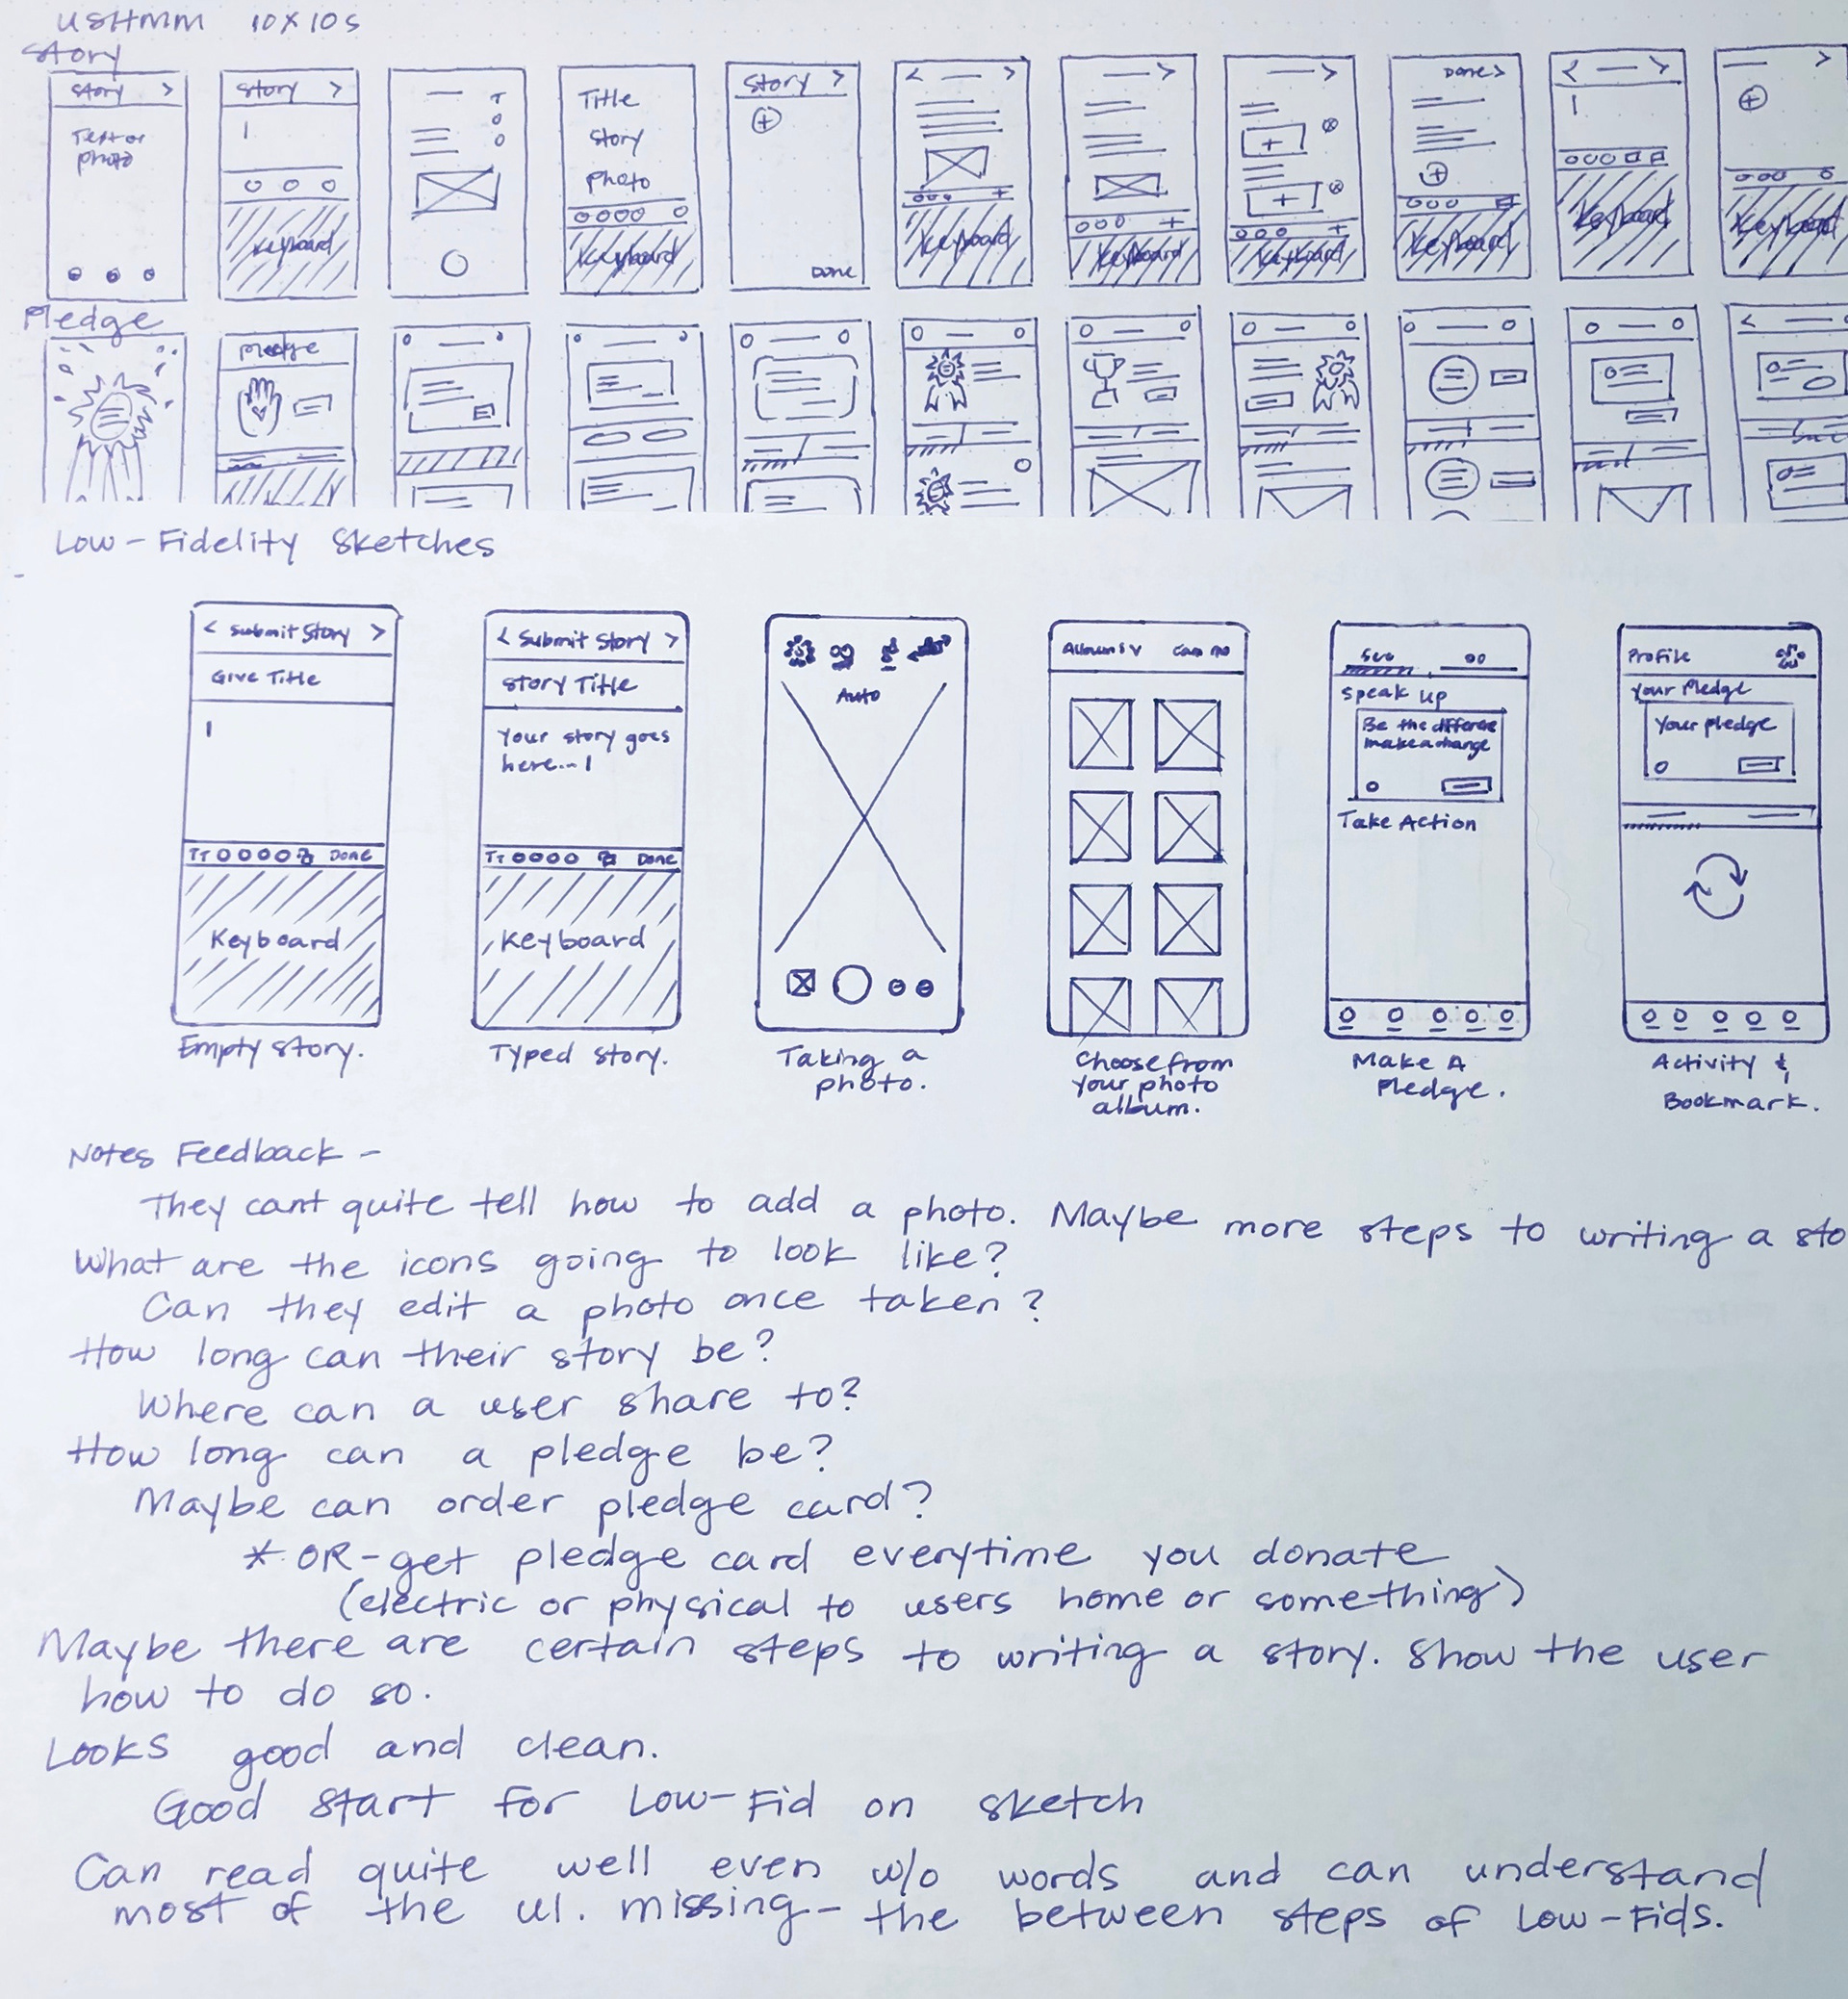 USHMM 10x10s
Story
Story >
Text or
photo
Story >
Keyboard
T
Title
Story
Photo
Keyboard
Story >
Done
< >
Keyboard
>
Keyboard
>
Keyboard
Done >
Keyboard
< >
Keyboard
>
Keyboard
Pledge
Pledge
Low-Fidelity Sketches
< Submit Story >
Give Title
TT DONE
Keyboard
Empty story.
< Submit Story >
Story Title
Your story goes
here...
TT DONE
Keyboard
Typed story.
Auto
Taking a
photo.
Choose from
your photo
album.
Speak up
Be the difference
make a change
Take Action
Make A
Pledge.
Profile
Your Pledge
Your pledge
Activity &
Bookmark.
Notes Feedback -
They cant quite tell how to add a photo. Maybe more steps to writing a sto
What are the icons going to look like?
Can they edit a photo once taken?
How long can their story be?
Where can a user share to?
How long can a pledge be?
Maybe can order pledge card?
* OR - get pledge card everytime you donate
(electric or physical to users home or something)
Maybe there are certain steps to writing a story. Show the user
how to do so.
Looks good and clean.
Good start for Low-Fid on sketch
Can read quite well even w/o words and can understand
most of the UI. missing - the between steps of Low-Fids.